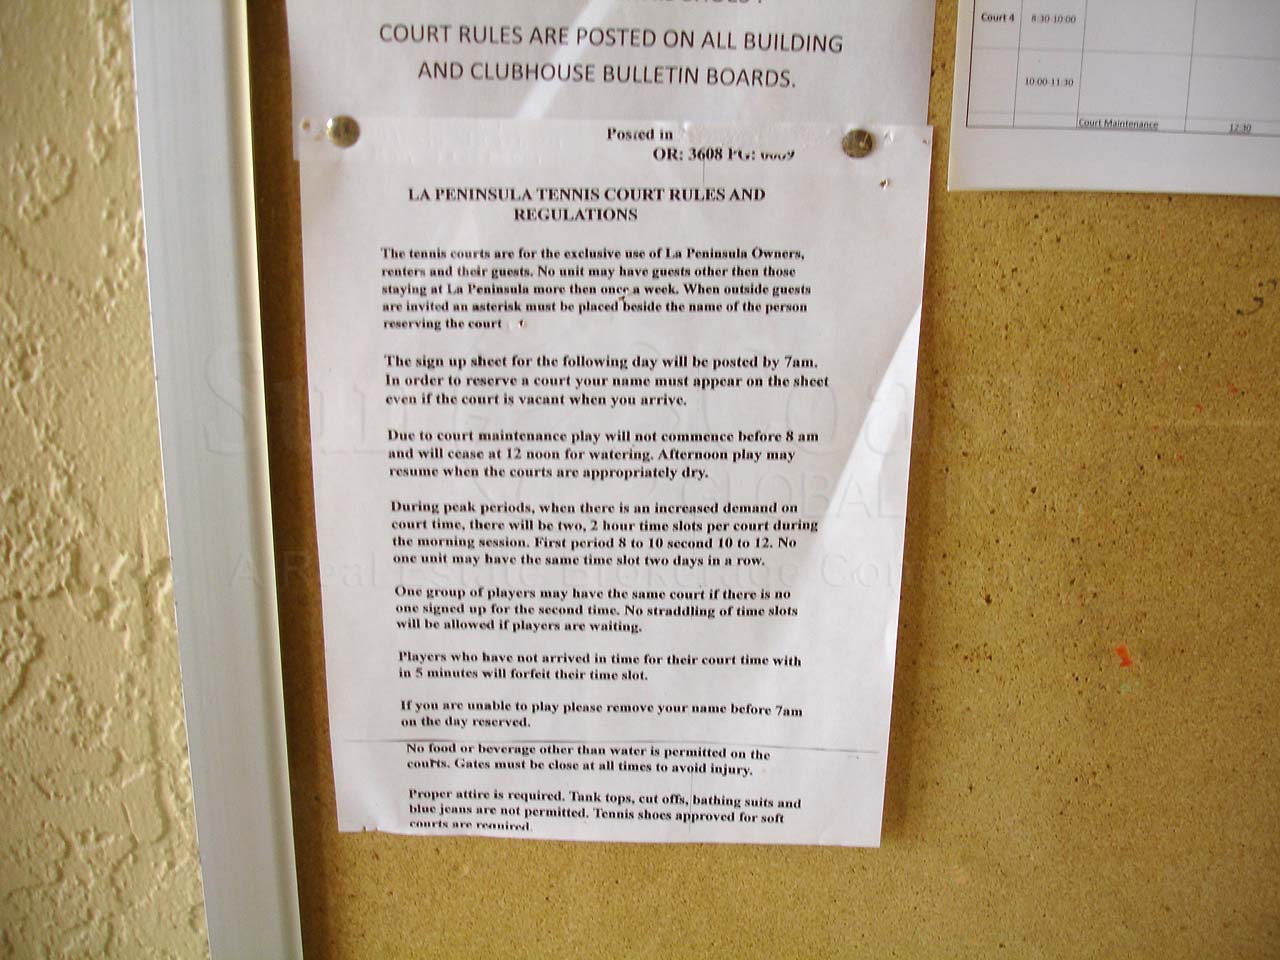 COURT RULES ARE POSTED ON ALL BUILDING
AND CLUBHOUSE BULLETIN BOARDS.
Court 4 8:30-10:00
10:00-11:30
Court Maintenance 12:30
Posted in
OR: 3608 PG: 0009
LA PENINSULA TENNIS COURT RULES AND
REGULATIONS
The tennis courts are for the exclusive use of La Peninsula Owners,
renters and their guests. No unit may have guests other then those
staying at La Peninsula more then once a week. When outside guests
are invited an asterisk must be placed beside the name of the person
reserving the court
The sign up sheet for the following day will be posted by 7am.
In order to reserve a court your name must appear on the sheet
even if the court is vacant when you arrive.
Due to court maintenance play will not commence before 8 am
and will cease at 12 noon for watering. Afternoon play may
resume when the courts are appropriately dry.
During peak periods, when there is an increased demand on
court time, there will be two, 2 hour time slots per court during
the morning session. First period 8 to 10 second 10 to 12. No
one unit may have the same time slot two days in a row.
One group of players may have the same court if there is no
one signed up for the second time. No straddling of time slots
will be allowed if players are waiting.
Players who have not arrived in time for their court time with
in 5 minutes will forfeit their time slot.
If you are unable to play please remove your name before 7am
on the day reserved.
No food or beverage other than water is permitted on the
courts. Gates must be close at all times to avoid injury.
Proper attire is required. Tank tops, cut offs, bathing suits and
blue jeans are not permitted. Tennis shoes approved for soft
courts are required